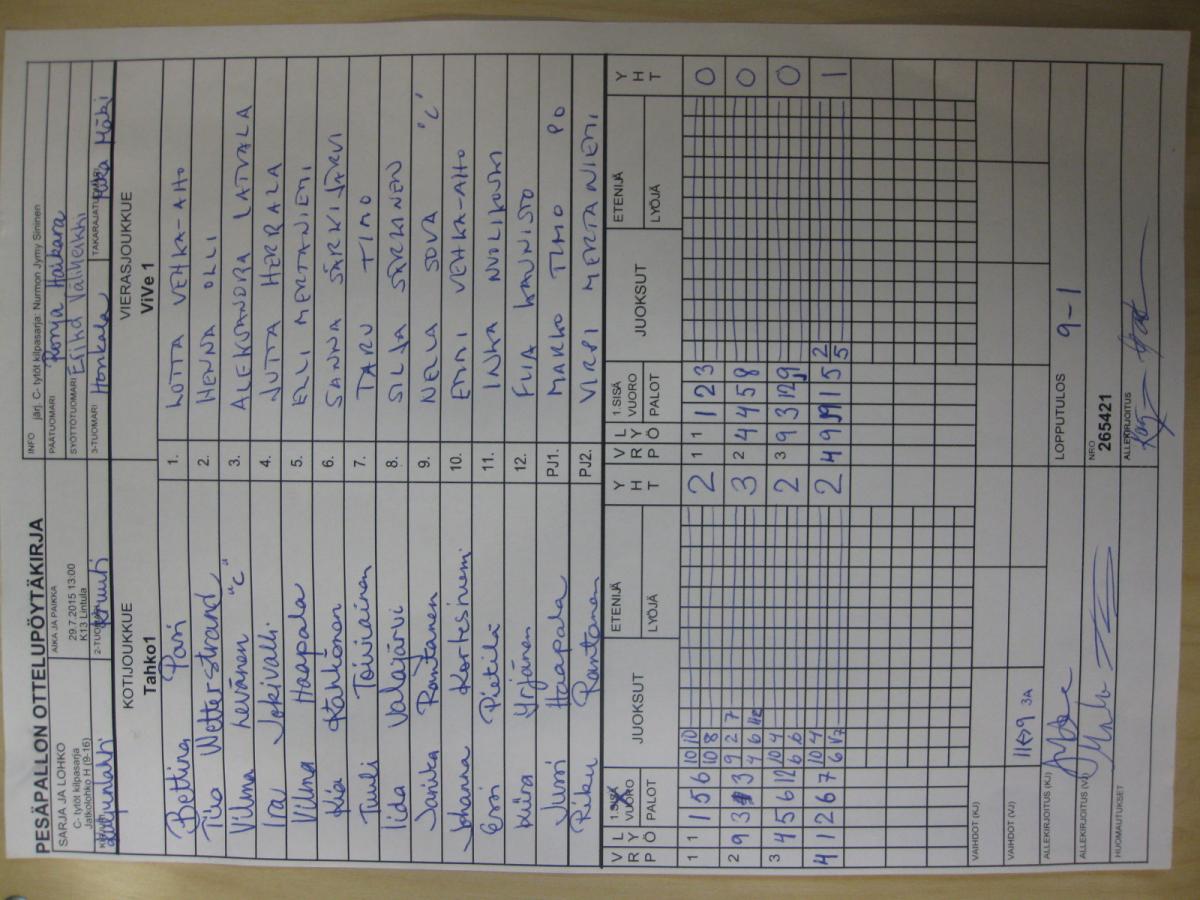 PESÄPALLON OTTELUPÖYTÄKIRJA
SARJA JA LOHKO
C- tytöt kilpasarja
Jatkolohko H (9-16)
AIKA JA PAIKKA
29.7.2015 13:00
K13 Lintula
2-TUOMARI
INFO järj. C- tytöt kilpasarja: Nurmon Jymy Sininen
PÄÄTUOMARI Ronja Haikara
SYÖTTÖTUOMARI Erika Välimäki
3-TUOMARI Honkala
TAKARAJATUOMARI Mäki
KOTIJOUKKUE
Tahko1
VIERASJOUKKUE
ViVe 1
Bettina Pasi 1. LOTTA VEHKA-AHO
Tilo Wetterstrand 2. HENNA OLLI
Vilma Levänen "C" 3. ALEKSANDRA LATVALA
Ira Jokivalli 4. JUTTA HERRALA
Vilma Haapala 5. ELLI MERTANIEMI
Kia Kähkönen 6. SANNA SÄRKIJÄRVI
Tuuli Toiviainen 7. TARU TIMO
Iida Valajärvi 8. SILJA SÄRKINEN
Janika Rantanen 9. NELLA SOVA "C"
Johanna Kortesniemi 10. EMMI VEHKA-AHO
Essi Pietilä 11. INKA NUOLIKOSKI
Miisa Yrjänen 12. FIIA KAUNISTO
Jussi Haapala PJ1. MARKKO TIMO PO
Riku Rantanen PJ2. VIRPI MERTANIEMI
VRP LYÖ 1.SISÄ VUORO PALOT JUOKSUT ETENIJÄ LYÖJÄ YHT
VRP LYÖ 1.SISÄ VUORO PALOT JUOKSUT ETENIJÄ LYÖJÄ YHT
1 1 1 5 6 10 10 2
10 8
1 1 1 2 3 0
2 9 3 3 9 2 7 3
4 6
2 4 4 5 8 0
3 4 5 6 12 10 4 2
6 6
3 9 3 12 0
4 1 2 6 7 10 4 2
6
4 9 1 5 2 1
5
VAIHDOT (KJ)
VAIHDOT (VJ) 11<->9 3A
LOPPUTULOS 9-1
ALLEKIRJOITUS (KJ)
ALLEKIRJOITUS (VJ)
NRO
265421
HUOMAUTUKSET
ALLEKIRJOITUS